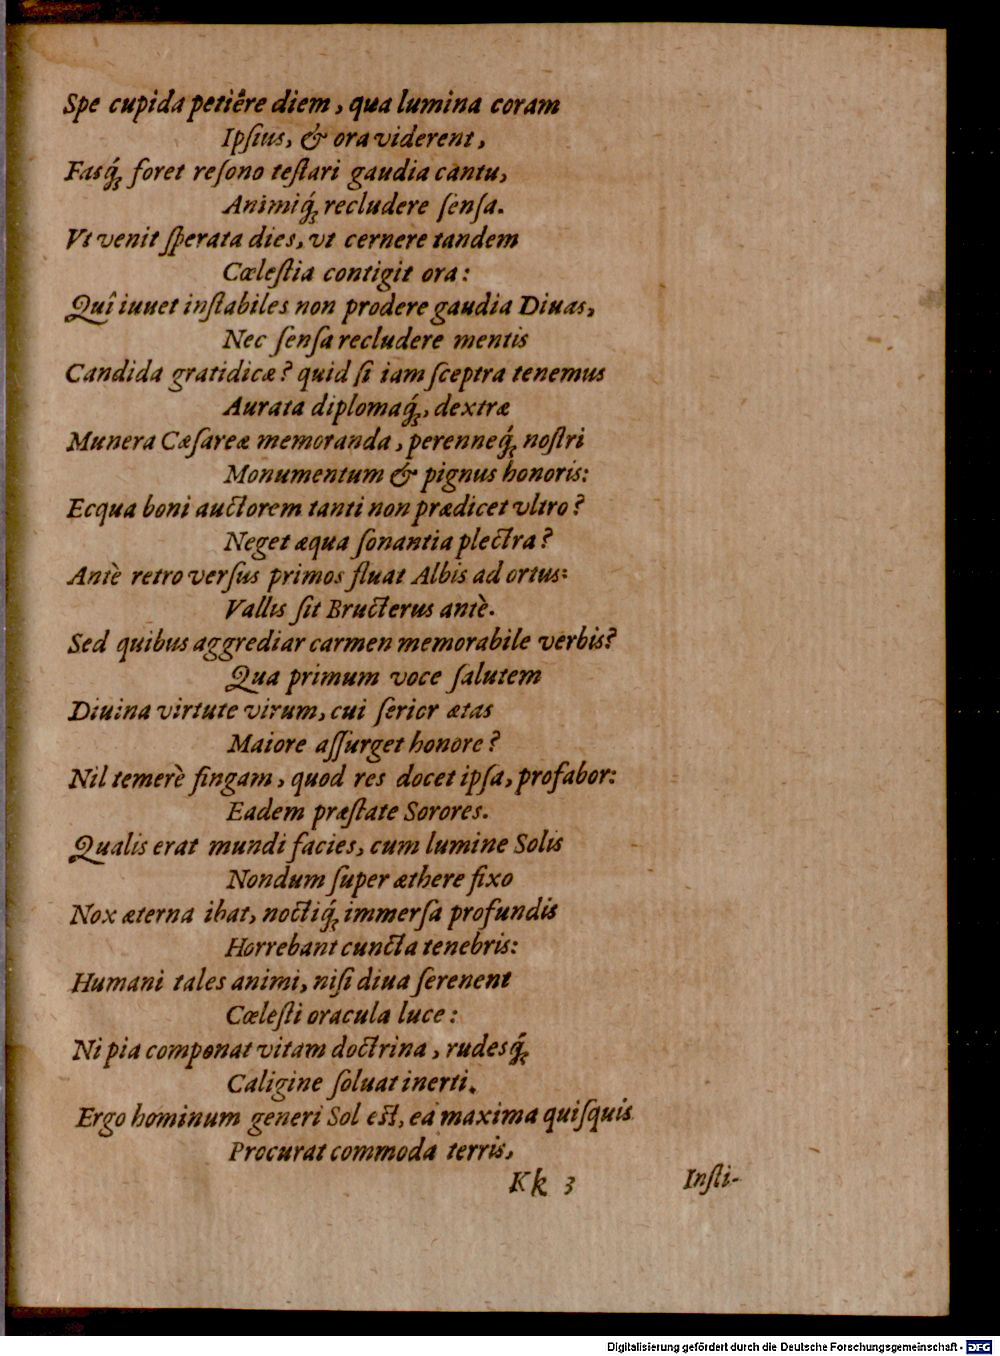 Spe cupida petiêre diem, qua lumina coram
Ipſius, & ora viderent,
Fasq́; foret reſono teſtari gaudia cantu,
Animiq́; recludere ſenſa.
Vt venit ſperata dies, vt cernere tandem
Cœleſtia contigit ora:
Quî iuuet inſtabiles non prodere gaudia Diuas,
Nec ſenſa recludere mentis
Candida gratidicæ? quid ſi iam ſceptra tenemus
Aurata diplomaq́;, dextræ
Munera Cæſareæ memoranda, perenneq́; noſtri
Monumentum & pignus honoris:
Ecqua boni auctorem tanti non prædicet vltro?
Neget æqua ſonantia plectra?
Antè retro verſus primos fluat Albis ad ortus:
Vallis ſit Bructerus antè.
Sed quibus aggrediar carmen memorabile verbis?
Qua primum voce ſalutem
Diuina virtute virum, cui ſerior ætas
Maiore aſſurget honore?
Nil temerè fingam, quod res docet ipſa, profabor:
Eadem præſtate Sorores.
Qualis erat mundi facies, cum lumine Solis
Nondum ſuper æthere fixo
Nox æterna ibat, noctiq́; immerſa profundis
Horrebant cuncta tenebris:
Humani tales animi, niſi diua ſerenent
Cœleſti oracula luce:
Ni pia componat vitam doctrina, rudesq́;
Caligine ſoluat inerti.
Ergo hominum generi Sol eſt, ea maxima quiſquis
Procurat commoda terris,
Kk 3 Inſti-
Digitalisierung gefördert durch die Deutsche Forschungsgemeinschaft - DFG